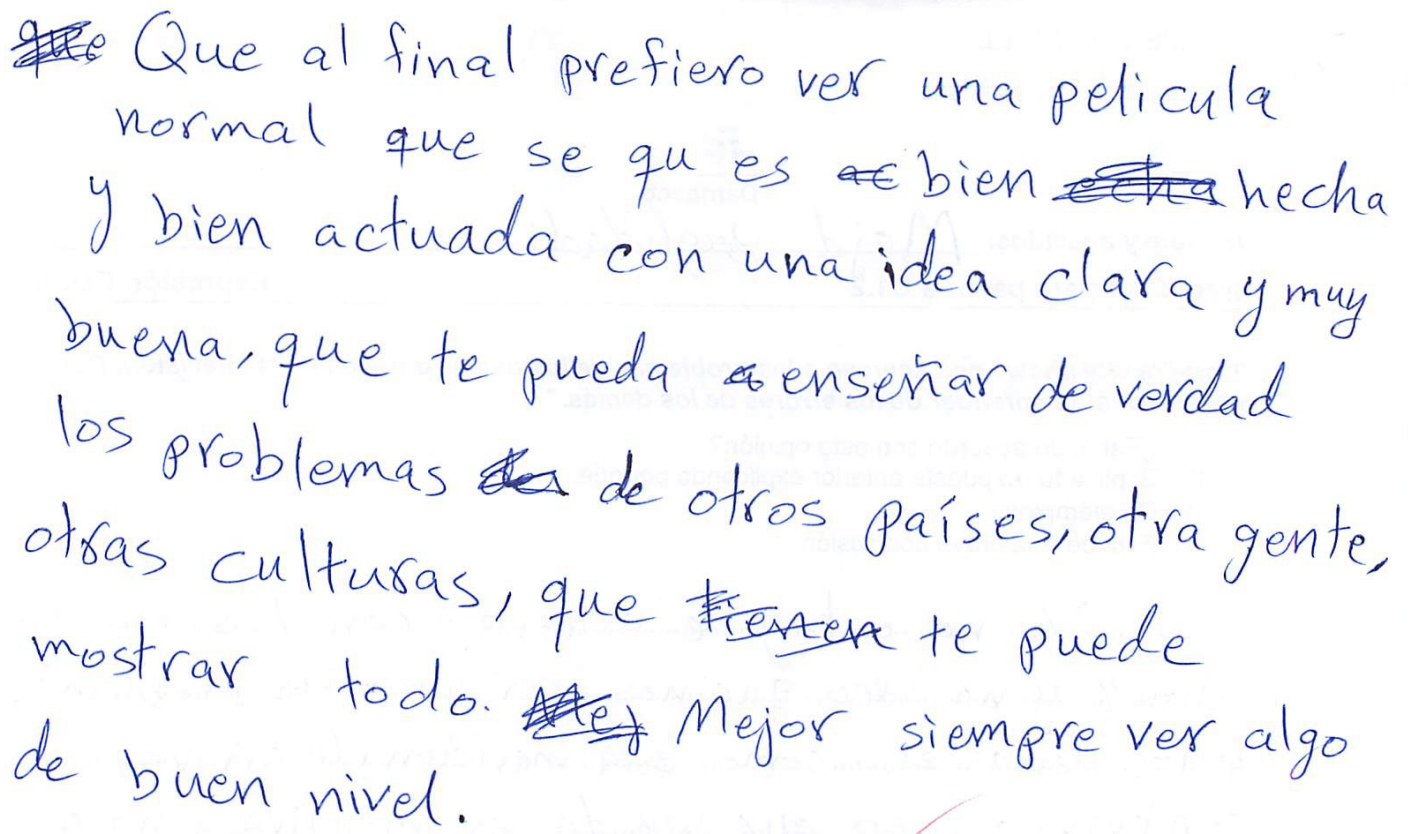 Que al final prefiero ver una pelicula
normal que se qu es bien hecha
y bien actuada con una idea clara y muy
buena, que te pueda enseñar de verdad
los problemas de otros países, otra gente,
otras culturas, que te puede
mostrar todo. Mejor siempre ver algo
de buen nivel.